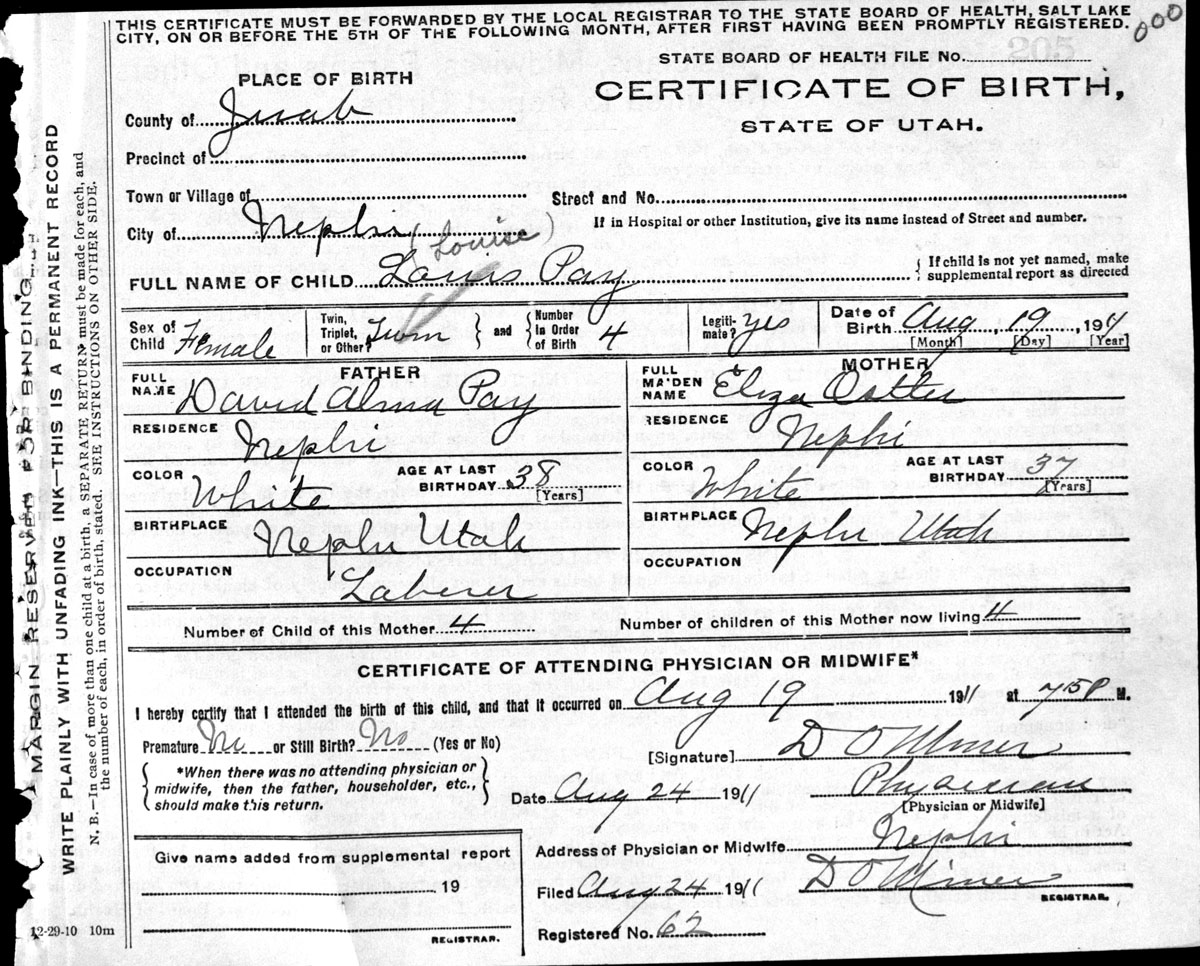 THIS CERTIFICATE MUST BE FORWARDED BY THE LOCAL REGISTRAR TO THE STATE BOARD OF HEALTH, SALT LAKE
CITY, ON OR BEFORE THE 5TH OF THE FOLLOWING MONTH, AFTER FIRST HAVING BEEN PROMPTLY REGISTERED.
000
STATE BOARD OF HEALTH FILE NO.
PLACE OF BIRTH
CERTIFICATE OF BIRTH,
STATE OF UTAH.
County of Juab
Precinct of
Town or Village of
Street and No.
City of Nephi
If in Hospital or other Institution, give its name instead of Street and number.
(Louise)
FULL NAME OF CHILD Louis Pay
If child is not yet named, make
supplemental report as directed
Sex of Child Female
Twin, Triplet, or Other? Twin
and
Number In Order of Birth 4
Legiti-mate? yes
Date of Birth Aug, 19, 1911
[Month] [Day] [Year]
FATHER
FULL NAME David Alma Pay
RESIDENCE Nephi
COLOR White
AGE AT LAST BIRTHDAY 38
[Years]
BIRTHPLACE Nephi Utah
OCCUPATION Laberer
MOTHER
FULL MAIDEN NAME Eliza Ostler
RESIDENCE Nephi
COLOR White
AGE AT LAST BIRTHDAY 37
[Years]
BIRTHPLACE Nephi Utah
OCCUPATION
Number of Child of this Mother 4
Number of children of this Mother now living 4
CERTIFICATE OF ATTENDING PHYSICIAN OR MIDWIFE*
I hereby certify that I attended the birth of this child, and that it occurred on Aug 19 1911 at 7 15 P M.
Premature No or Still Birth? No (Yes or No)
[Signature] D O Miner
*When there was no attending physician or
midwife, then the father, householder, etc.,
should make this return.
Date Aug 24 1911
Physician
[Physician or Midwife]
Give name added from supplemental report
19
REGISTRAR.
Address of Physician or Midwife Nephi
Filed Aug 24 1911
D O Miner
REGISTRAR.
Registered No. 62
12-29-10 10m
MARGIN RESERVED FOR BINDING
WRITE PLAINLY WITH UNFADING INK—THIS IS A PERMANENT RECORD
N. B.—In case of more than one child at a birth, a SEPARATE RETURN must be made for each, and
the number of each, in order of birth, stated. SEE INSTRUCTIONS ON OTHER SIDE.